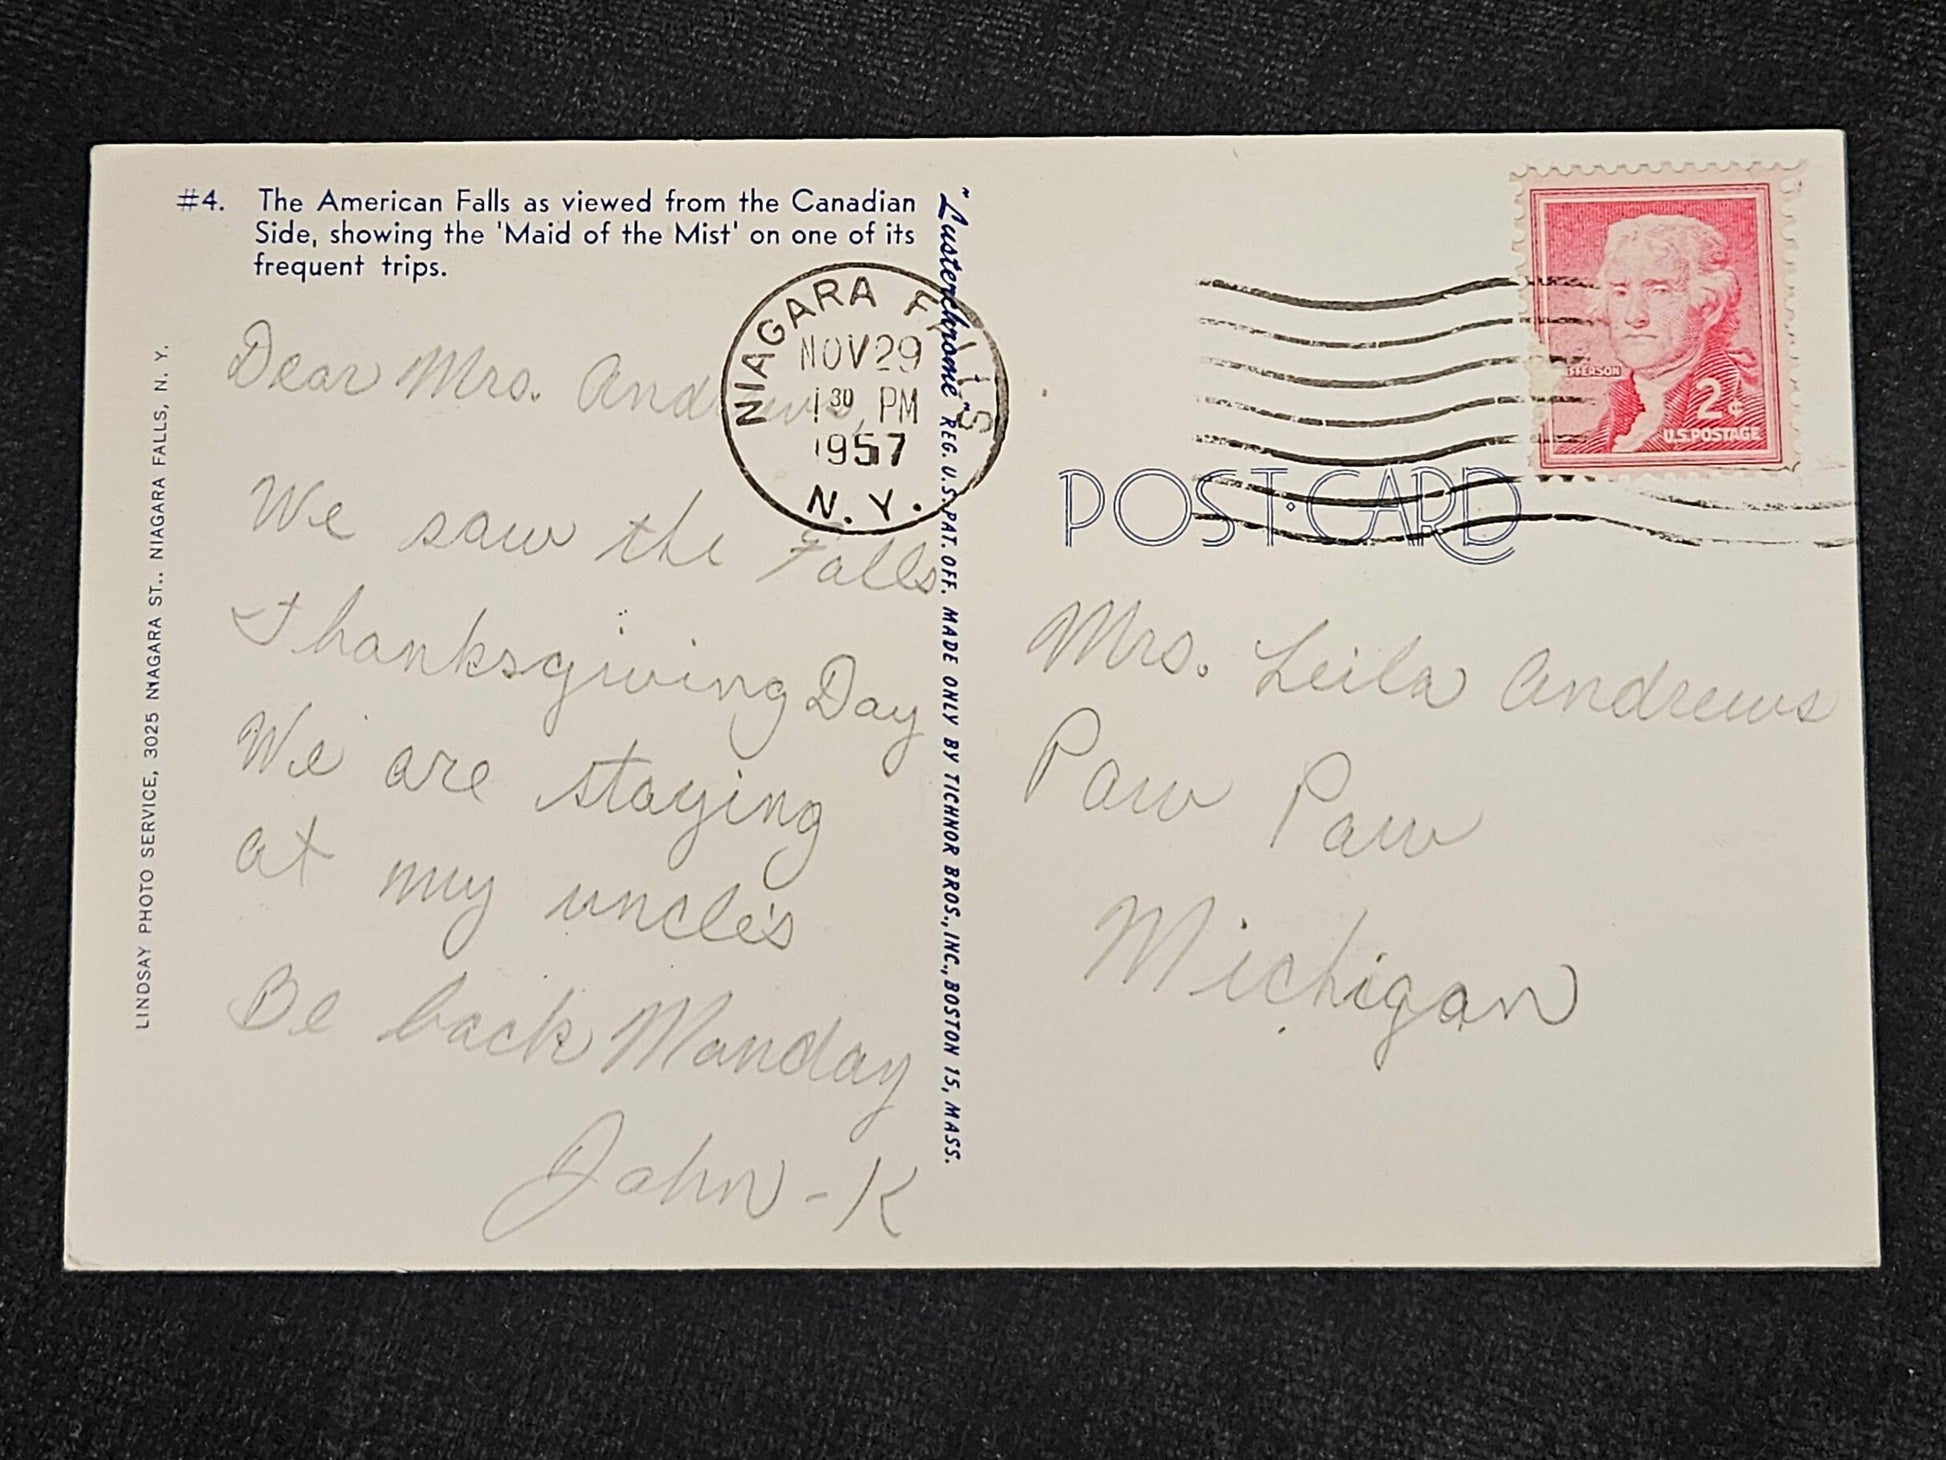 #4. The American Falls as viewed from the Canadian
Side, showing the 'Maid of the Mist' on one of its
frequent trips.
Dear Mrs. Andrews,
We saw the Falls
Thanksgiving Day
We are staying
at my uncle's
Be back Monday
John - K
LINDSAY PHOTO SERVICE, 3025 NIAGARA ST., NIAGARA FALLS, N. Y.
NIAGARA FALLS
NOV 29
1 30 PM
1957
N. Y.
"Lusterchrome" REG. U.S. PAT. OFF. MADE ONLY BY TICHNOR BROS., INC., BOSTON 15, MASS.
JEFFERSON
2¢
U.S. POSTAGE
POST·CARD
Mrs. Leila Andrews
Paw Paw
Michigan